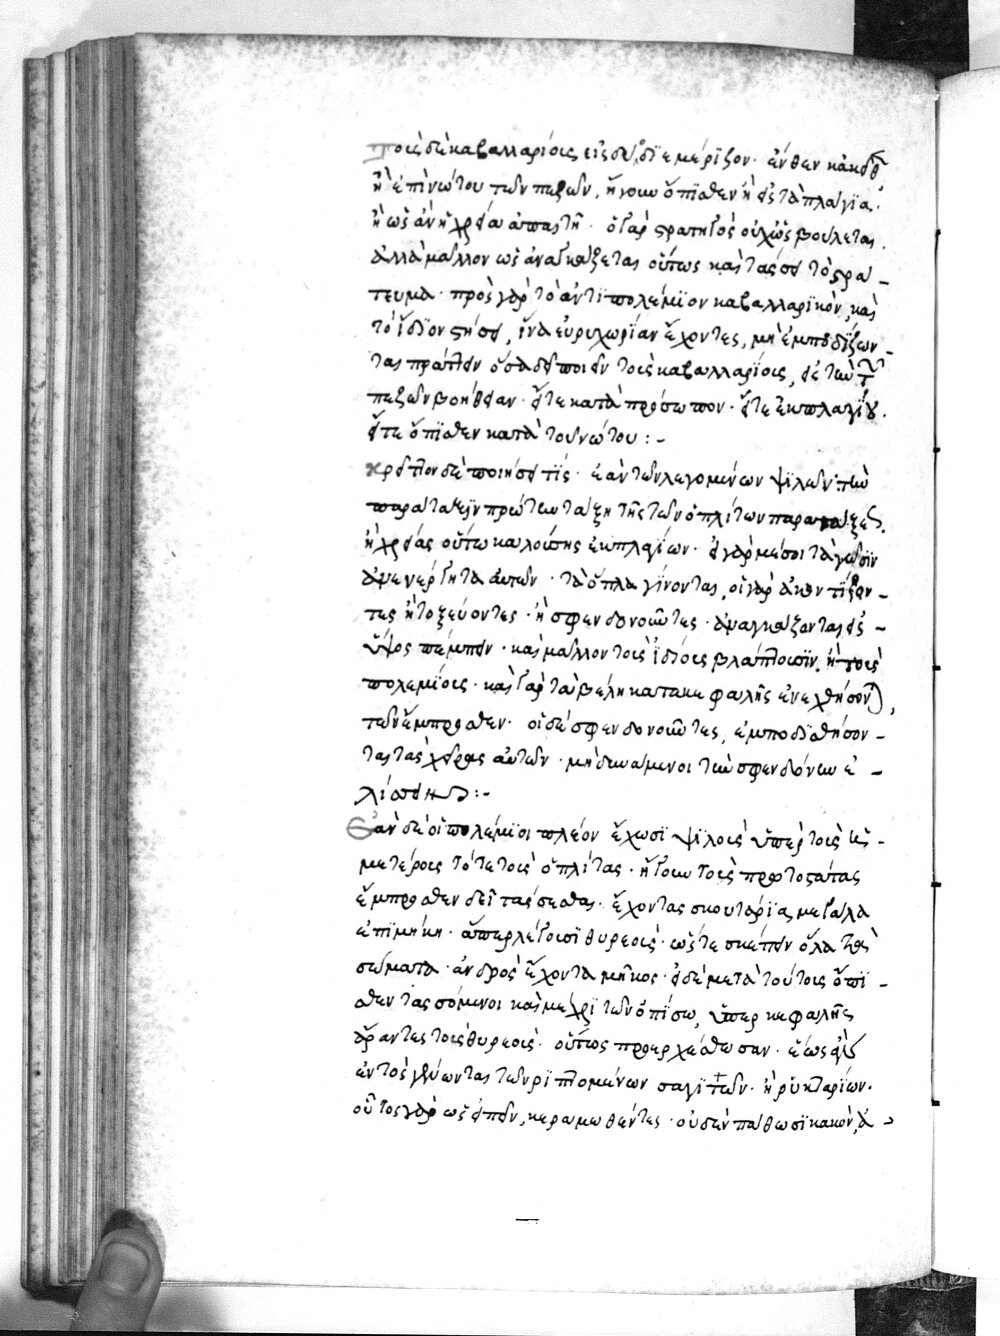 τοὺς δὲ καβαλλαρίους εἰς δύο διεμέριζον· ἔνθεν κἀκεῖθεν
ἢ ἐπὶ νώτου τῶν πεζῶν, ἤγουν ὄπισθεν ἢ εἰς τὰ πλάγια·
ἢ ὡς ἂν ἡ χρεία ἀπαιτῇ· ὁ γὰρ στρατηγὸς οὐχ ὡς βούλεται.
ἀλλὰ μᾶλλον ὡς ἀναγκάζεται οὕτως καὶ τάσσει τὸ στρά-
τευμα· πρὸς γὰρ τὸ ἀντιπολέμιον καβαλλαρικὸν, καὶ
τὸ ἴδιον στήσει, ἵνα εὐρυχωρίαν ἔχοντες, μὴ ἐμποδίζων-
ται πράττειν ὅσα δεῖ ποιεῖν τοῖς καβαλλαρίοις, εἰς τὴν τῶν
πεζῶν βοήθειαν· εἴτε κατὰ πρόσωπον· εἴτε ἐκ πλαγίου.
εἴτε ὄπισθεν κατὰ τοῦ νώτου :-
κρεῖττον δὲ ποιήσει τις· ἐὰν τῶν λεγομένων ψιλῶν τὴν
παράταξιν πρώτην τάξῃ τῆς τῶν ὁπλιτῶν παρατάξεως.
ἢ χρείας οὕτω καλούσης ἐκ πλαγίων· εἰ γὰρ μέσοι ταγῶσιν
ἀνενέργητα αὐτῶν· τὰ ὅπλα γίνονται, οἱ γὰρ ἀκοντίζον-
τες ἢ τοξεύοντες· ἢ σφενδονοῦντες· ἀναγκάζονται εἰς
ὕψος πέμπειν· καὶ μᾶλλον τοὺς ἰδίους βλάπτουσιν. ἢ τοὺς
πολεμίους· καὶ γὰρ τὰ βέλη κατὰ κεφαλῆς ἐνεχθήσονται,
τῶν ἔμπροσθεν· οἱ δὲ σφενδονοῦντες, ἐμποδισθήσον-
ται τὰς χεῖρας αὐτῶν· μὴ δυνάμενοι τὴν σφενδόνην ἑ-
λίσσειν :-
Ἐὰν δὲ οἱ πολέμιοι πλέον ἔχωσι ψιλοὺς ὑπὲρ τοὺς ἡ-
μετέρους τότε τοὺς ὁπλίτας· ἤγουν τοὺς πρωτοστάτας
ἔμπροσθεν δεῖ τάσσεσθαι· ἔχοντας σκουτάρια μεγάλα
ἐπιμήκη· ἅπερ λέγουσι θυρεούς· ὥστε σκέπειν ὅλα τὰ
σώματα· ἀνδρὸς ἔχοντα μῆκος· οἱ δὲ μετὰ τούτους ὄπι-
σθεν τασσόμενοι καὶ μέχρι τῶν ὀπίσω, ὑπὲρ κεφαλῆς
ἄραντες τοὺς θυρεούς· οὕτως προερχέσθωσαν· ἕως ἂν
ἐντὸς γένωνται τῶν ῥιπτομένων σαγιττῶν· ἢ ῥικταρίων·
οὕτος γὰρ ὡς εἰπεῖν, κεραμωθέντες· οὐδὲν πάθωσι κακὸν, ἀ-